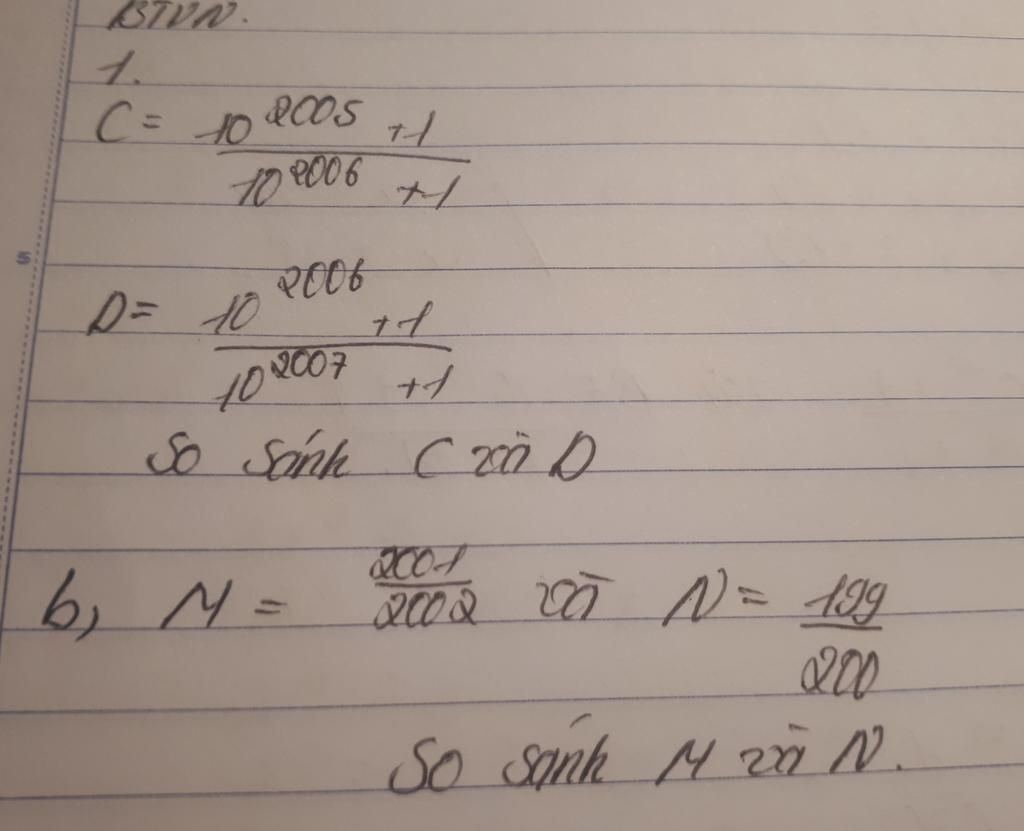 BTVN.
1.
C = 10^2005 +1
10^2006 +1
D = 10^2006 +1
10^2007 +1
So sánh C và D
b, M = 2001/2002 và N = 199/200
So sánh M và N.
5